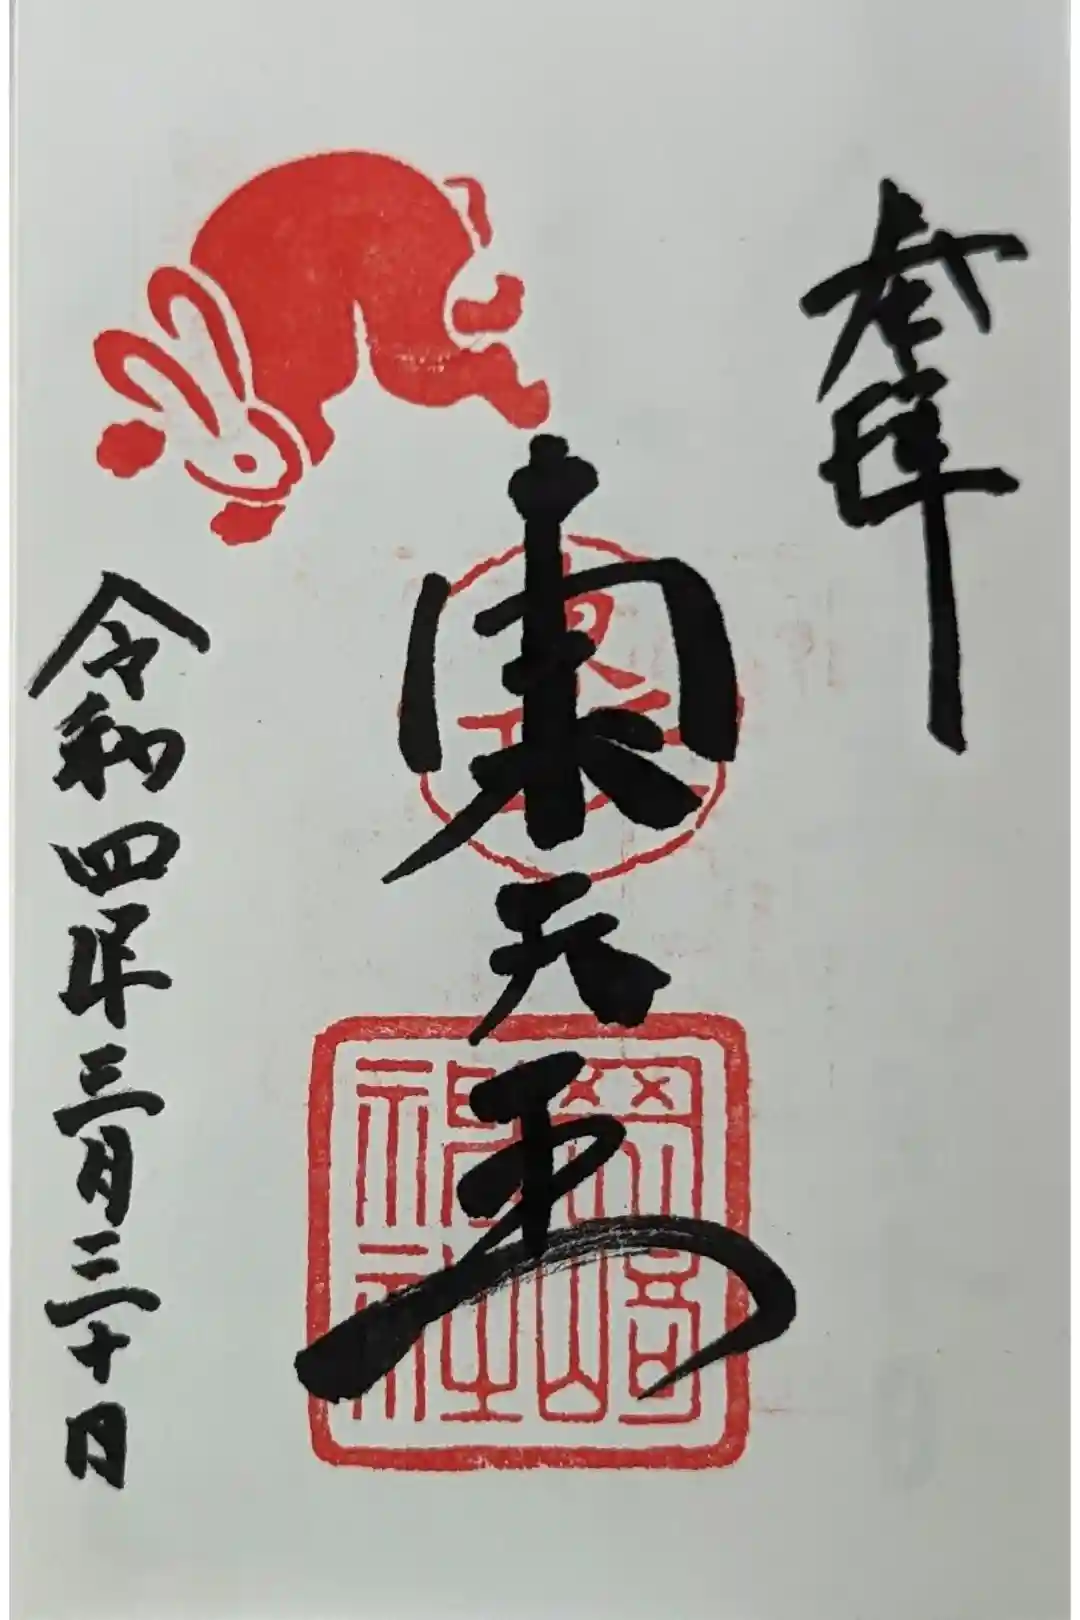 奉拝
東天王
岡崎神社
令和四年三月三十日